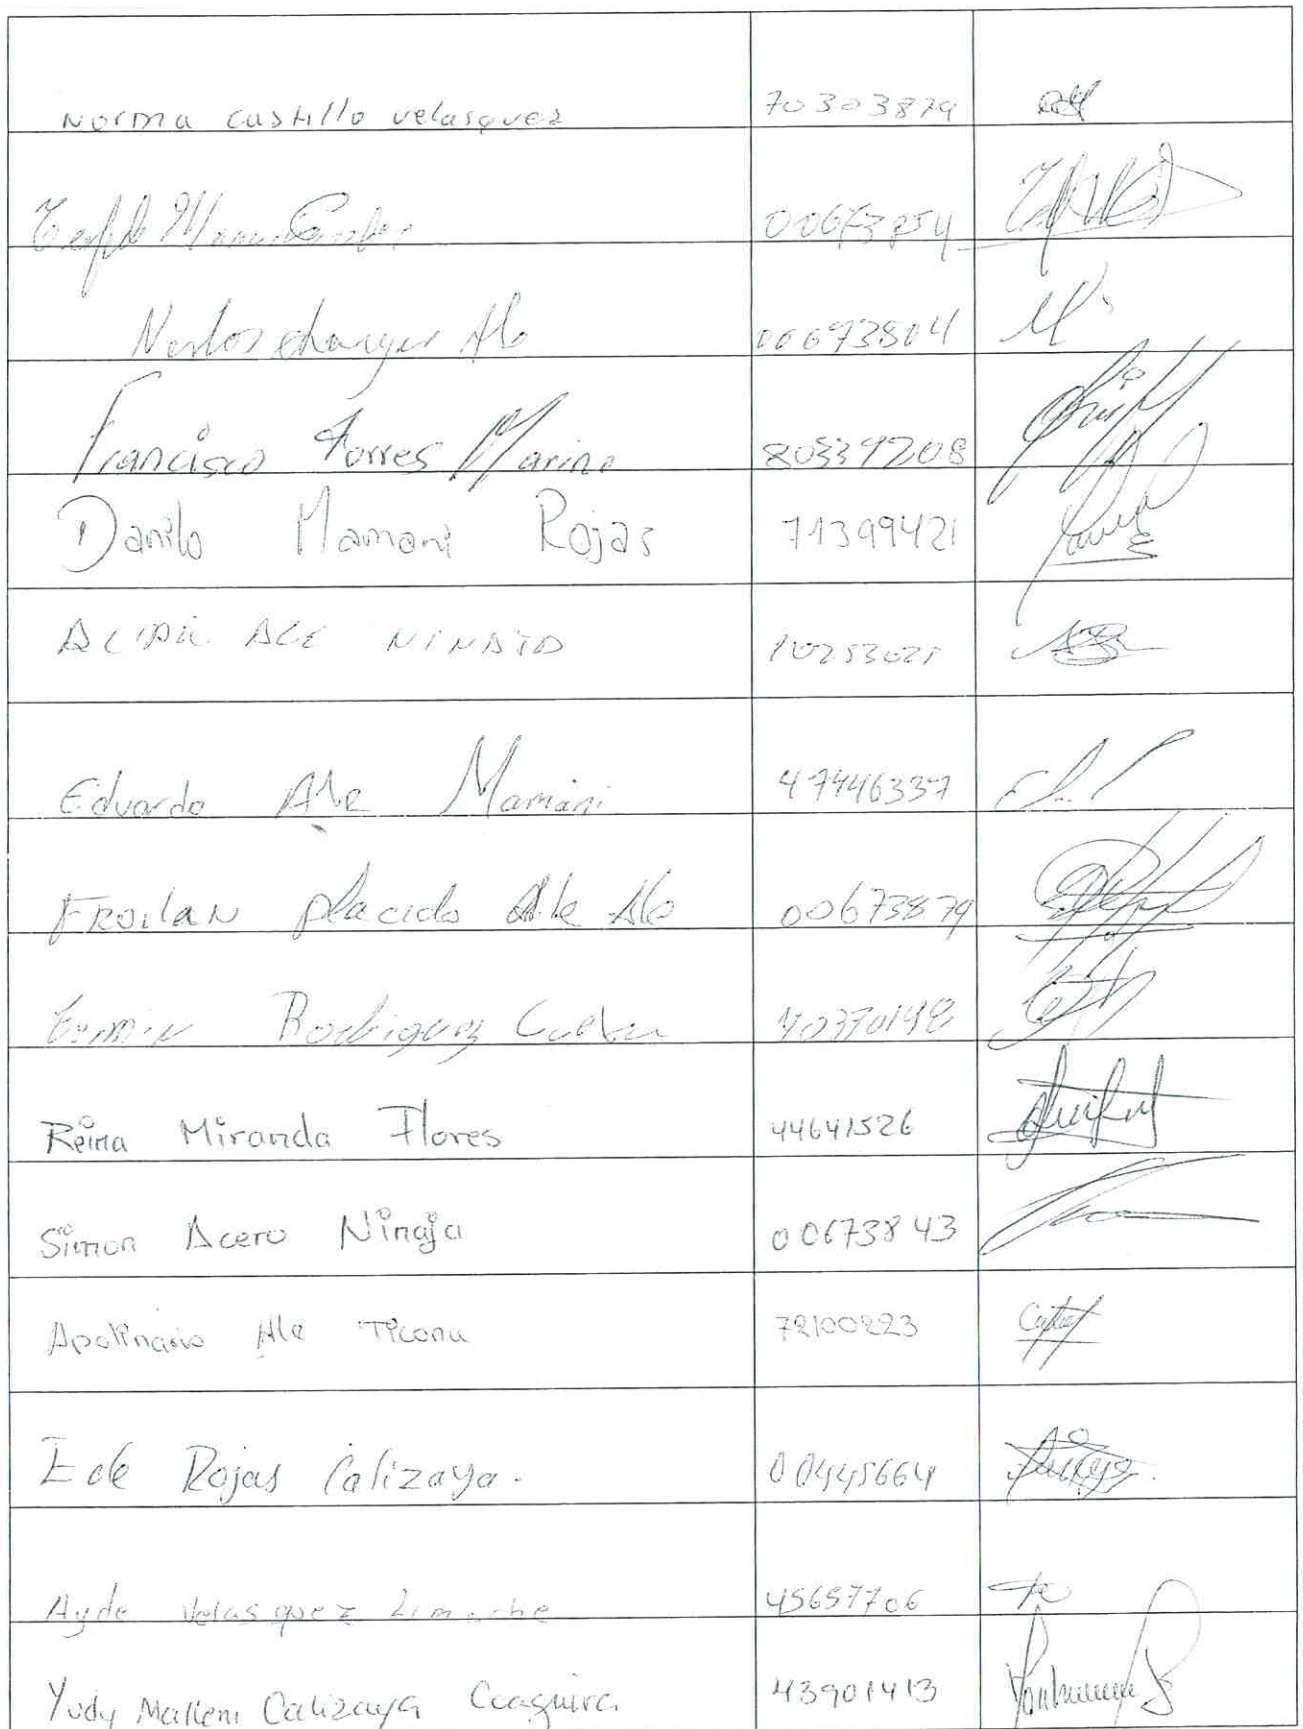 Norma castillo velasquez 70303879
Mamani 00673854
Ale 00673804
Francisco Torres Marino 80539208
Danilo Mamani Rojas 71399421
ALE NINAJA
Eduardo Ale Mamani 47446337
FROILAN placido Ale Ale 00673879
Fermin Rodriguez 40370148
Reina Miranda Flores 44641526
Simon Acero Ninaja 00673843
Apolinario Ale Ticona 72100223
Ede Rojas Calizaya. 00445664
Ayde Velasquez Limache 45657706
Yudy Malleni Calizaya Coaquira 43901413